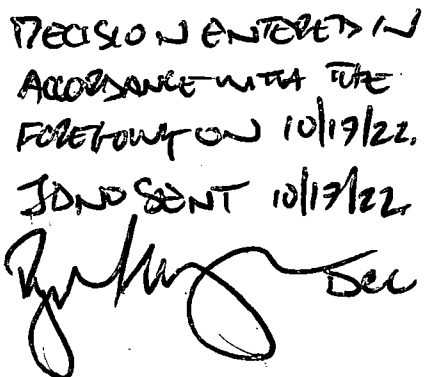 DECISION ENTERED IN
ACCORDANCE WITH THE
FOREGOING ON 10/17/22.
JDNO SENT 10/17/22.